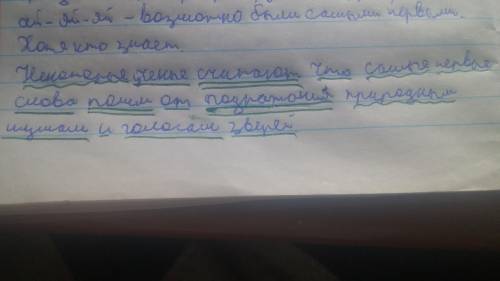 ай-яй-яй - возможно были самыми первыми.
Хотя кто знает.
Некоторые ученые считают что самые первые
слова пошли от подражания природным
шумам и голосам зверей